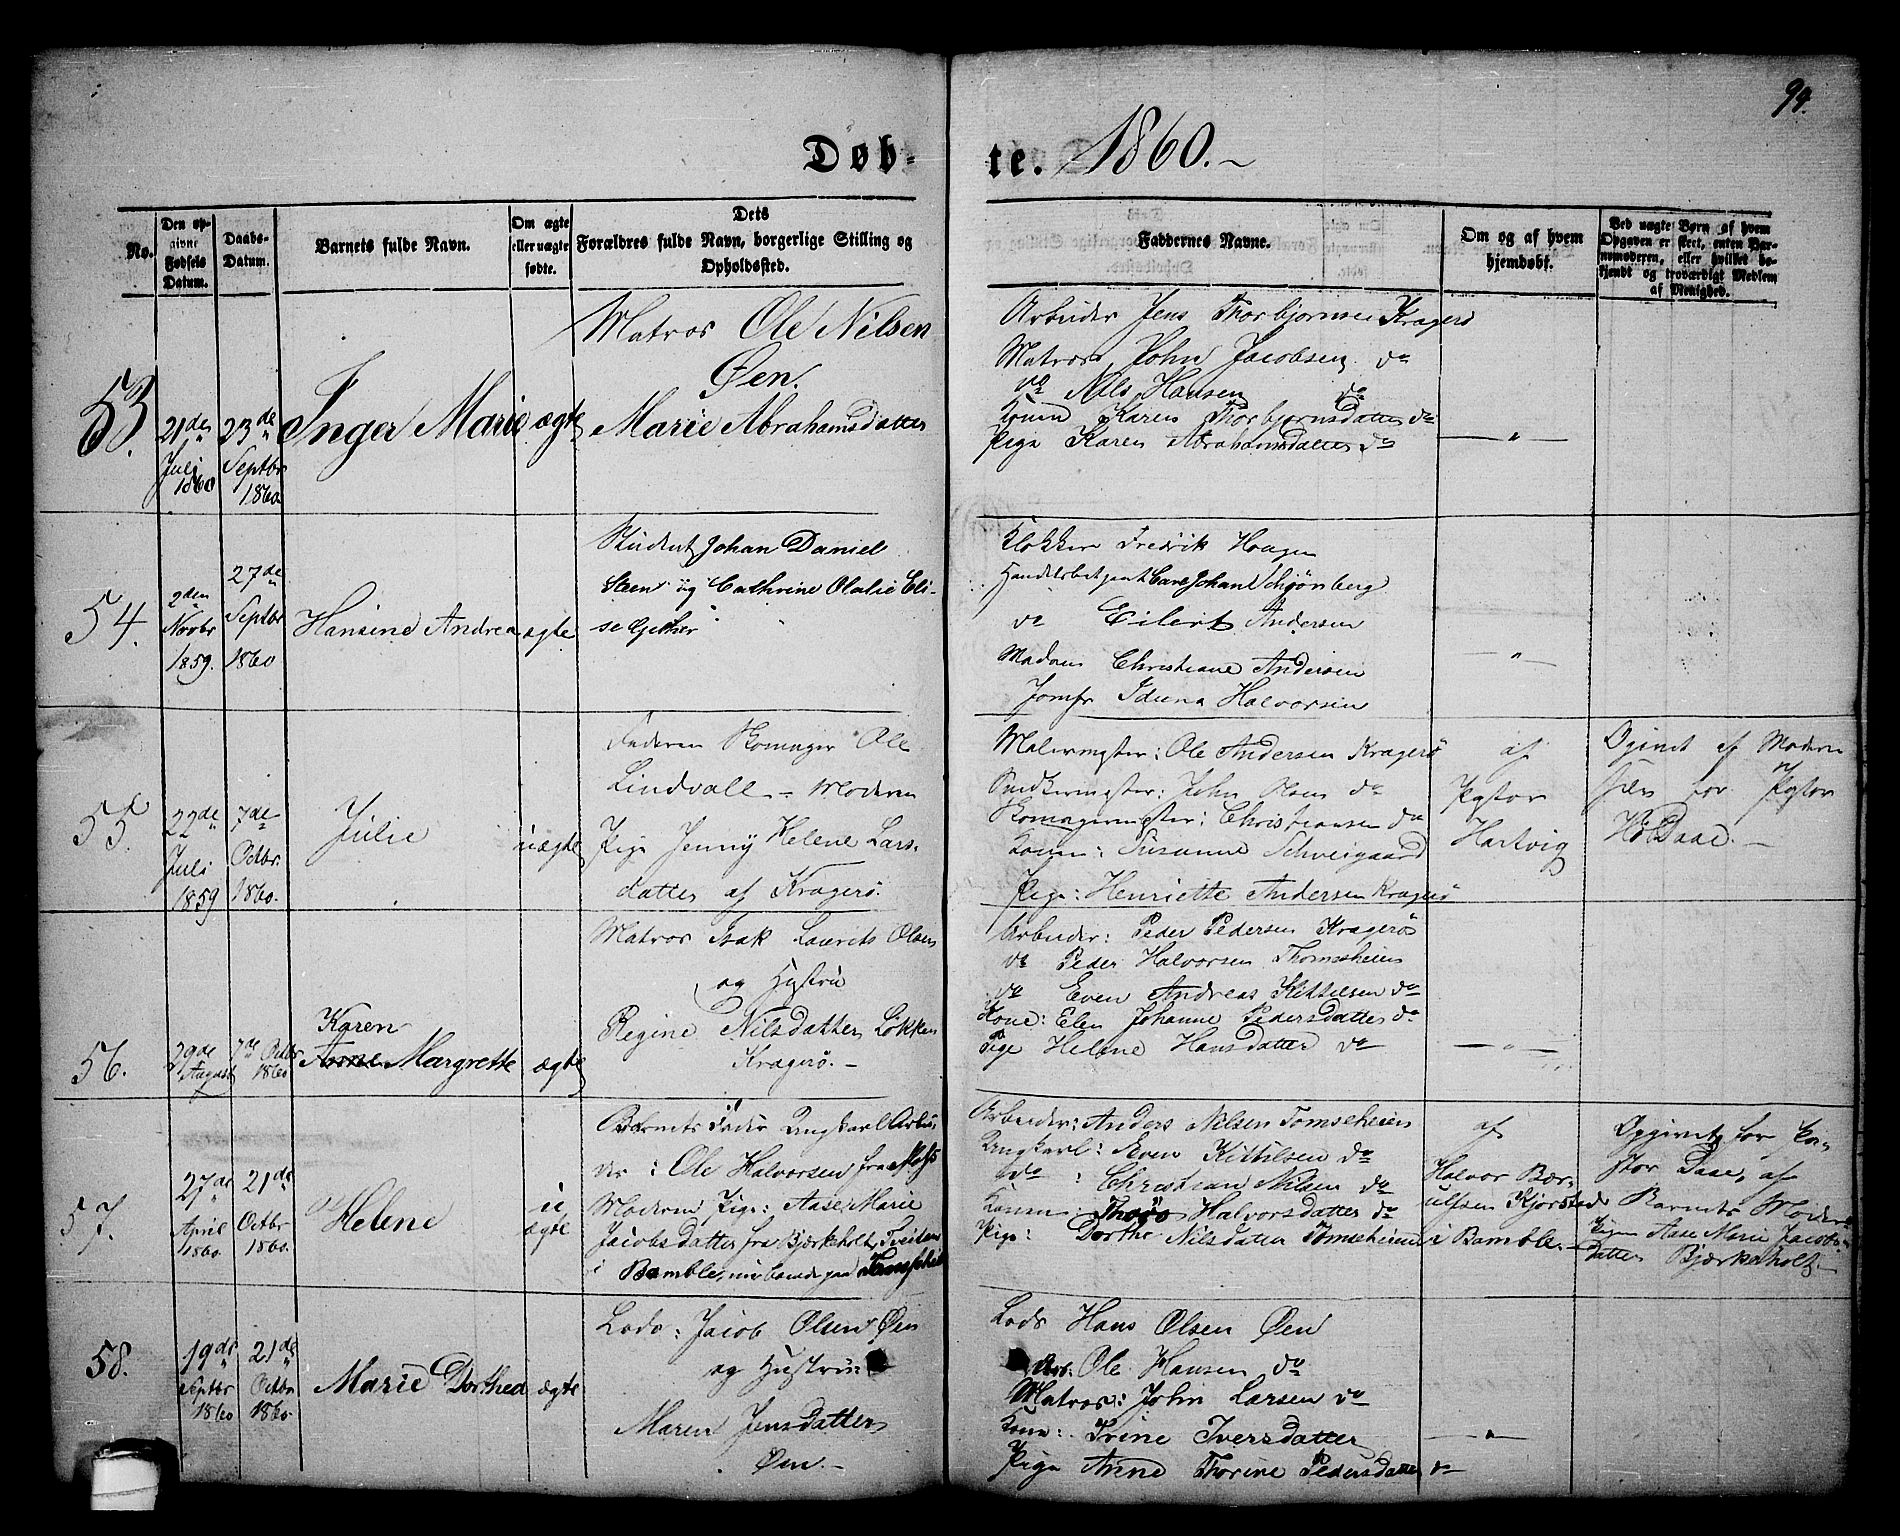 94.
Døb-
te. 1860.
No.
Den op-
givne
Fødsels
Datum.
Daabs-
Datum.
Barnets fulde Navn.
Om ægte
eller uægte
fødte.
Dets
Forældres fulde Navn, borgerlige Stilling og
Opholdssted.
Faddernes Navne.
Om og af hvem
hjemdøbt.
Ved uægte Børn af hvem
Opgaven er skeet, enten Bar-
nemoderen, eller hvilket be-
kjendt og troværdigt Medlem
af Menighed.
53.
21de
Juli
1860
23de
Septbr
1860.
Inger Marie
ægte
Matros Ole Nilsen
Øen.
Marie Abrahamsdatter
Arbeider Jens Thorbjørnsen Kragerø
Matros John Jacobsen do
do Nils Hansen do
Konen Karen Thorbjørnsdatter do
Pige Karen Abrahamsdatter do
— " —
54.
2den
Novbr
1859.
27de
Septbr
1860
Hansine Andrea
ægte
Student Johan Daniel
Steen og Cathrine Olalie Eli-
se Gether
Klokker Fredrik Haagen
Handelsbetjent Carl Johan Schjønberg
do Eilert Andersen
Madam Christiane Andersen
Jomfr Iduna Halvorsen
— " —
55.
22de
Juli
1859
7de
Octbr.
1860.
Julie
uægte
Faderen Skomager Ole
Lindvall – Moderen
Pige Jenny Helene Lars-
datter af Kragerø.
Malermester: Ole Andersen Kragerø
Snedkermester: John Olsen do
Skomagermester: Christiansen do
Konen: Susanne Schweigaard
Pige: Henriette Andersen Kragerø
af
Pastor
Hartvig
Opgivet af Moderen
selv for Pastor
Daae. –
56.
29de
August
7de Octbr
1860
Karen
Anne Margrethe
ægte
Matros Isak Laurits Olsen
og Hustru
Regine Nilsdatter Løkken
Kragerø. –
Arbeider: Peder Pedersen Kragerø
do Peder Halvorsen Thomesheien
do Even Andreas Kittilsen do
Kone: Elen Johanne Pedersdatter do
Pige Helene Hansdatter do
— " —
57.
27de
April
1860.
21de
Octbr
1860.
Helene
u
ægte
Barnets Fader Ungkarl Arbei-
der: Ole Halvorsen fra
Moderen Pige: Aase Marie
Jacobsdatter fra Bjærkeholt,
i Bamble, nu
Arbeider: Anders Nilsen Tomseheien
Ungkarl: Even Kittilsen do
do : Christian Nilsen do
Konen Halvorsdatter do
Pige: Dorthe Nilsdatter Tomseheien
af
Halvor Bær-
ulfsen Kjørstad
i Bamble. –
Opgivet for Pa-
stor Daae, af
Barnets Moder
Pigen Aase Marie Jacobs-
datter Bjærkeholt. –
58.
19de
Septbr
1860
21de
Octbr
1860.
Marie Dorthea
ægte
Lods: Jacob Olsen Øen
og Hustru:
Maren Jensdatter
Øen. –
Lods Hans Olsen Øen
Arb: Ole Hansen do
Matros: John Larsen do
Kone: Trine Iversdatter
Pige Anne Thorine Pedersdatter do
— " —